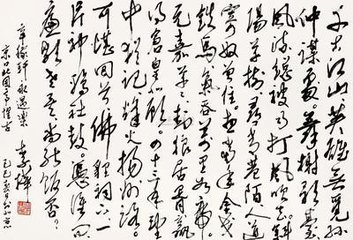 千古江山英雄无觅孙
仲谋处舞榭歌台
风流总被雨打风吹去斜
阳草树寻常巷陌人道
寄奴曾住想当年金戈
铁马气吞万里如虎
元嘉草草封狼居胥赢
得仓皇北顾四十三年望
中犹记烽火扬州路
可堪回首佛狸祠下一
片神鸦社鼓凭谁问
廉颇老矣尚能饭否
辛稼轩永遇乐
京口北固亭怀古